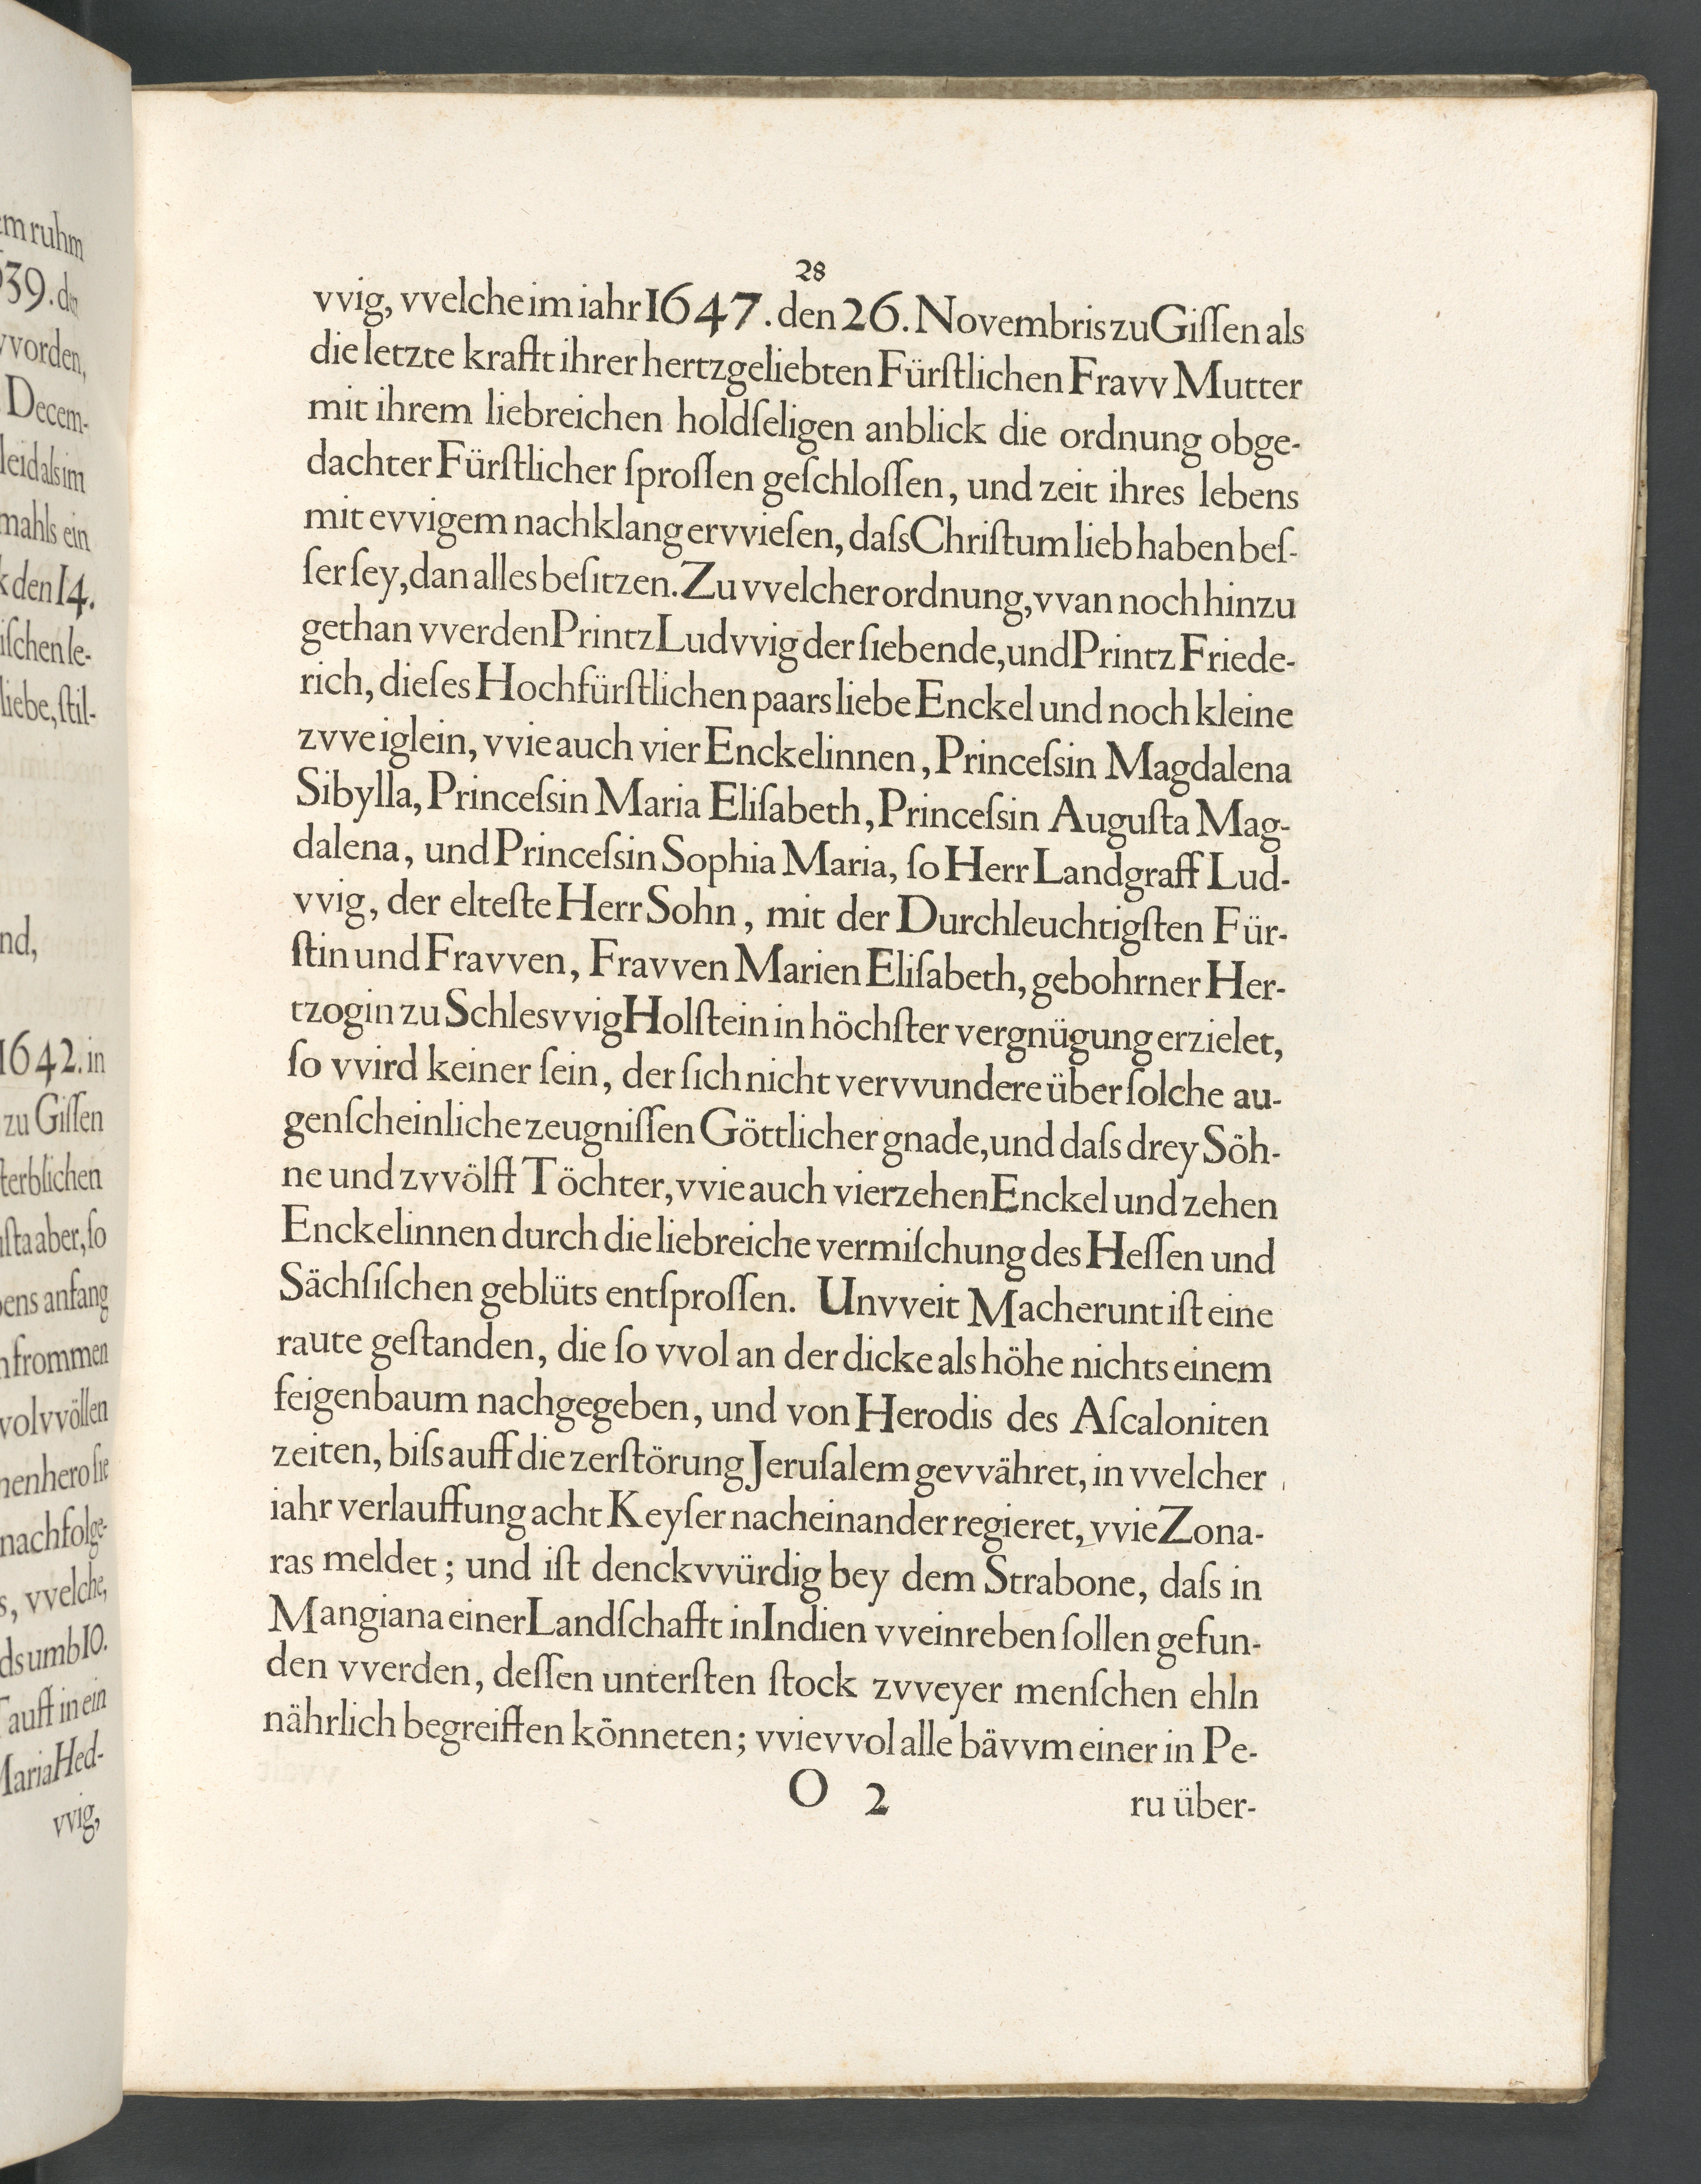 em ruhm
639. den
vvorden,
Decem-
leid als im
mahls ein
k den 14.
iſchen le-
liebe, ſtil-
nd,
1642. in
zu Giſſen
ſterblichen
uſta aber, ſo
bens anfang
n frommen
volvvöllen
nenhero ſie
nachfolge-
s, vvelche,
ds umb 10.
Tauff in ein
Maria Hed-
vvig,
28
vvig, vvelche im iahr 1647. den 26. Novembris zu Giſſen als
die letzte krafft ihrer hertzgeliebten Fürſtlichen Fravv Mutter
mit ihrem liebreichen holdſeligen anblick die ordnung obge-
dachter Fürſtlicher ſproſſen geſchloſſen, und zeit ihres lebens
mit evvigem nachklang ervvieſen, daſs Chriſtum lieb haben beſ-
ſer ſey, dan alles beſitzen. Zu vvelcher ordnung, vvan noch hinzu
gethan vverden Printz Ludvvig der ſiebende, und Printz Friede-
rich, dieſes Hochfürſtlichen paars liebe Enckel und noch kleine
zvveiglein, vvie auch vier Enckelinnen, Princeſsin Magdalena
Sibylla, Princeſsin Maria Eliſabeth, Princeſsin Auguſta Mag-
dalena, und Princeſsin Sophia Maria, ſo Herr Landgraff Lud-
vvig, der elteſte Herr Sohn, mit der Durchleuchtigſten Für-
ſtin und Fravven, Fravven Marien Eliſabeth, gebohrner Her-
tzogin zu Schlesvvig Holſtein in höchſter vergnügung erzielet,
ſo vvird keiner ſein, der ſich nicht vervvundere über ſolche au-
genſcheinliche zeugniſſen Göttlicher gnade, und daſs drey Söh-
ne und zvvölff Töchter, vvie auch vierzehen Enckel und zehen
Enckelinnen durch die liebreiche vermiſchung des Heſſen und
Sächſiſchen geblüts entſproſſen. Unvveit Macherunt iſt eine
raute geſtanden, die ſo vvol an der dicke als höhe nichts einem
feigenbaum nachgegeben, und von Herodis des Aſcaloniten
zeiten, biſs auff die zerſtörung Jeruſalem gevvähret, in vvelcher
iahr verlauffung acht Keyſer nacheinander regieret, vvie Zona-
ras meldet; und iſt denckvvürdig bey dem Strabone, daſs in
Mangiana einer Landſchafft in Indien vveinreben ſollen gefun-
den vverden, deſſen unterſten ſtock zvveyer menſchen ehln
nährlich begreiffen könneten; vvievvol alle bävvm einer in Pe-
O 2 ru über-